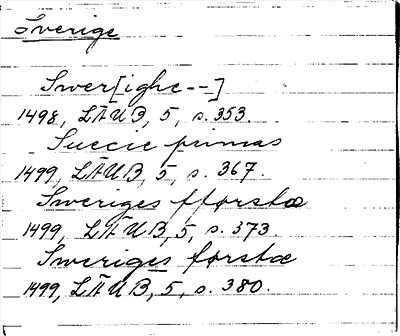 Sverige
Swer[ighe--]
1498, LÄUB, 5, s. 353.
Suecie primas
1499, LÄUB, 5, s. 367.
Sweriges fforsta
1499, LÄUB, 5, s. 373
Sweriges første
1499, LÄUB, 5, s. 380.